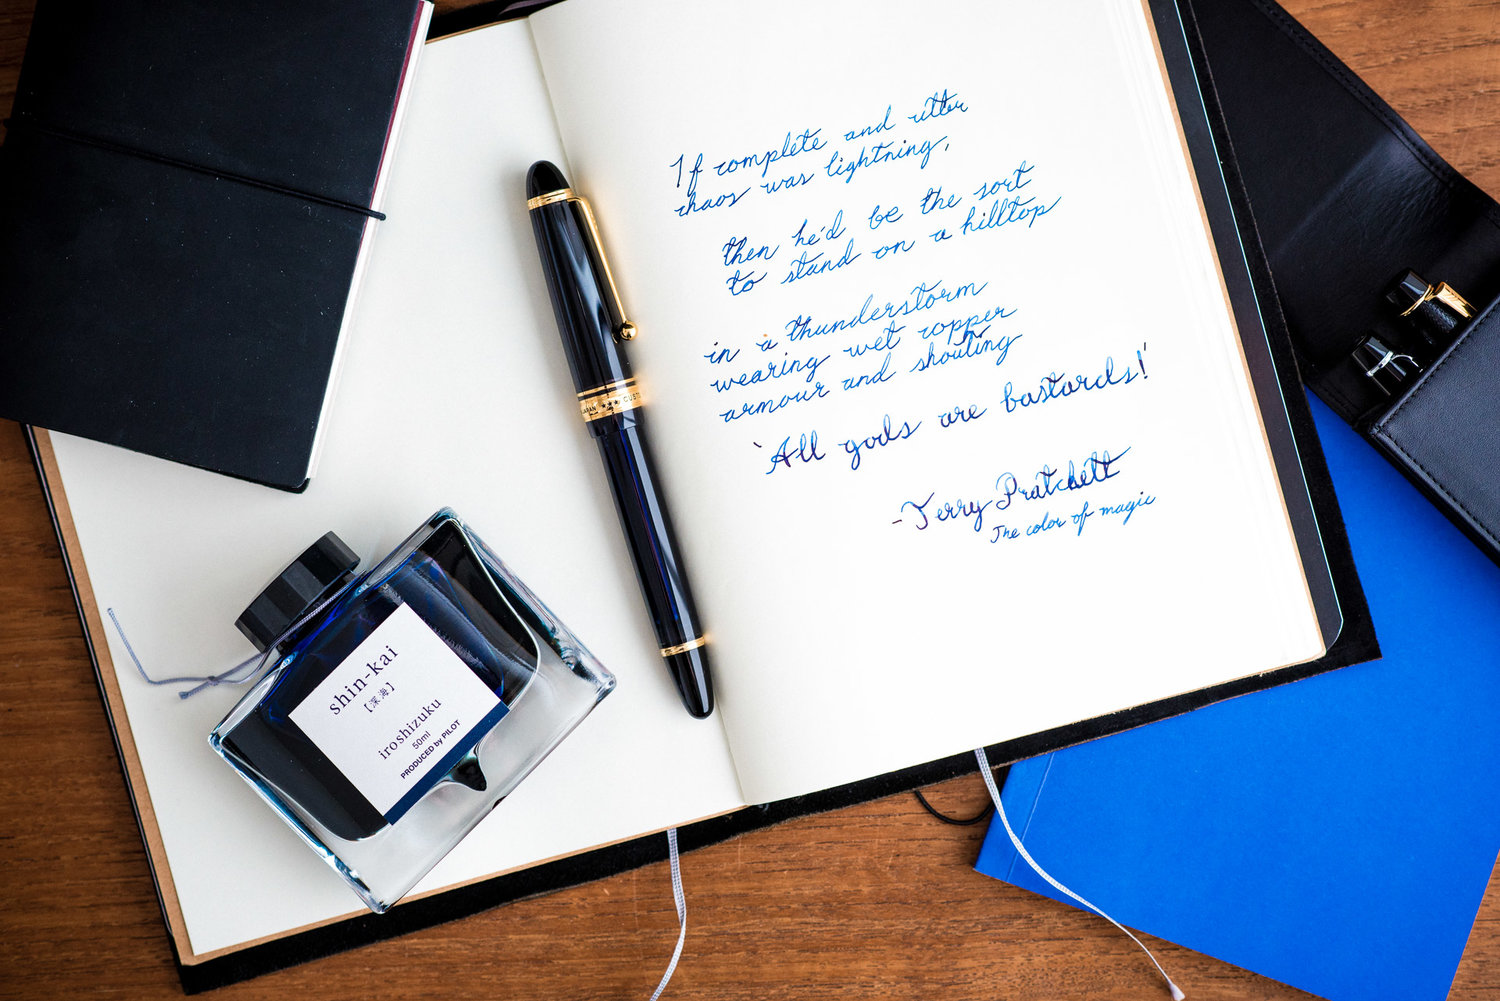 If complete and utter
chaos was lightning,
then he'd be the sort
to stand on a hilltop
in a thunderstorm
wearing wet copper
armour and shouting
'All gods are bastards!'
-Terry Pratchett
The color of magic
shin-kai
[深海]
iroshizuku
50ml
PRODUCED by PILOT